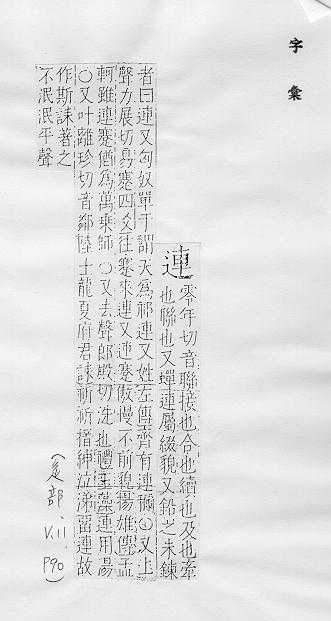 字彙
連
零年切音聯接也合也續也及也牽
也聯也又蟬連屬綴貌又鉛之未鍊
者曰連又匈奴單于謂天為祁連又姓左傳齊有連稱○又上
聲力展切易蹇四爻往蹇來連又連蹇傲慢不前貌揚雄傳孟
軻雖連蹇猶為萬乘師○又去聲郎殿切洗也禮玉藻連用湯
○又叶離珍切音鄰陸士龍夏府君誄祈祈搢紳泣涕留連故
作斯誄著之
不泯泯平聲
(辵部.V.11.P90)